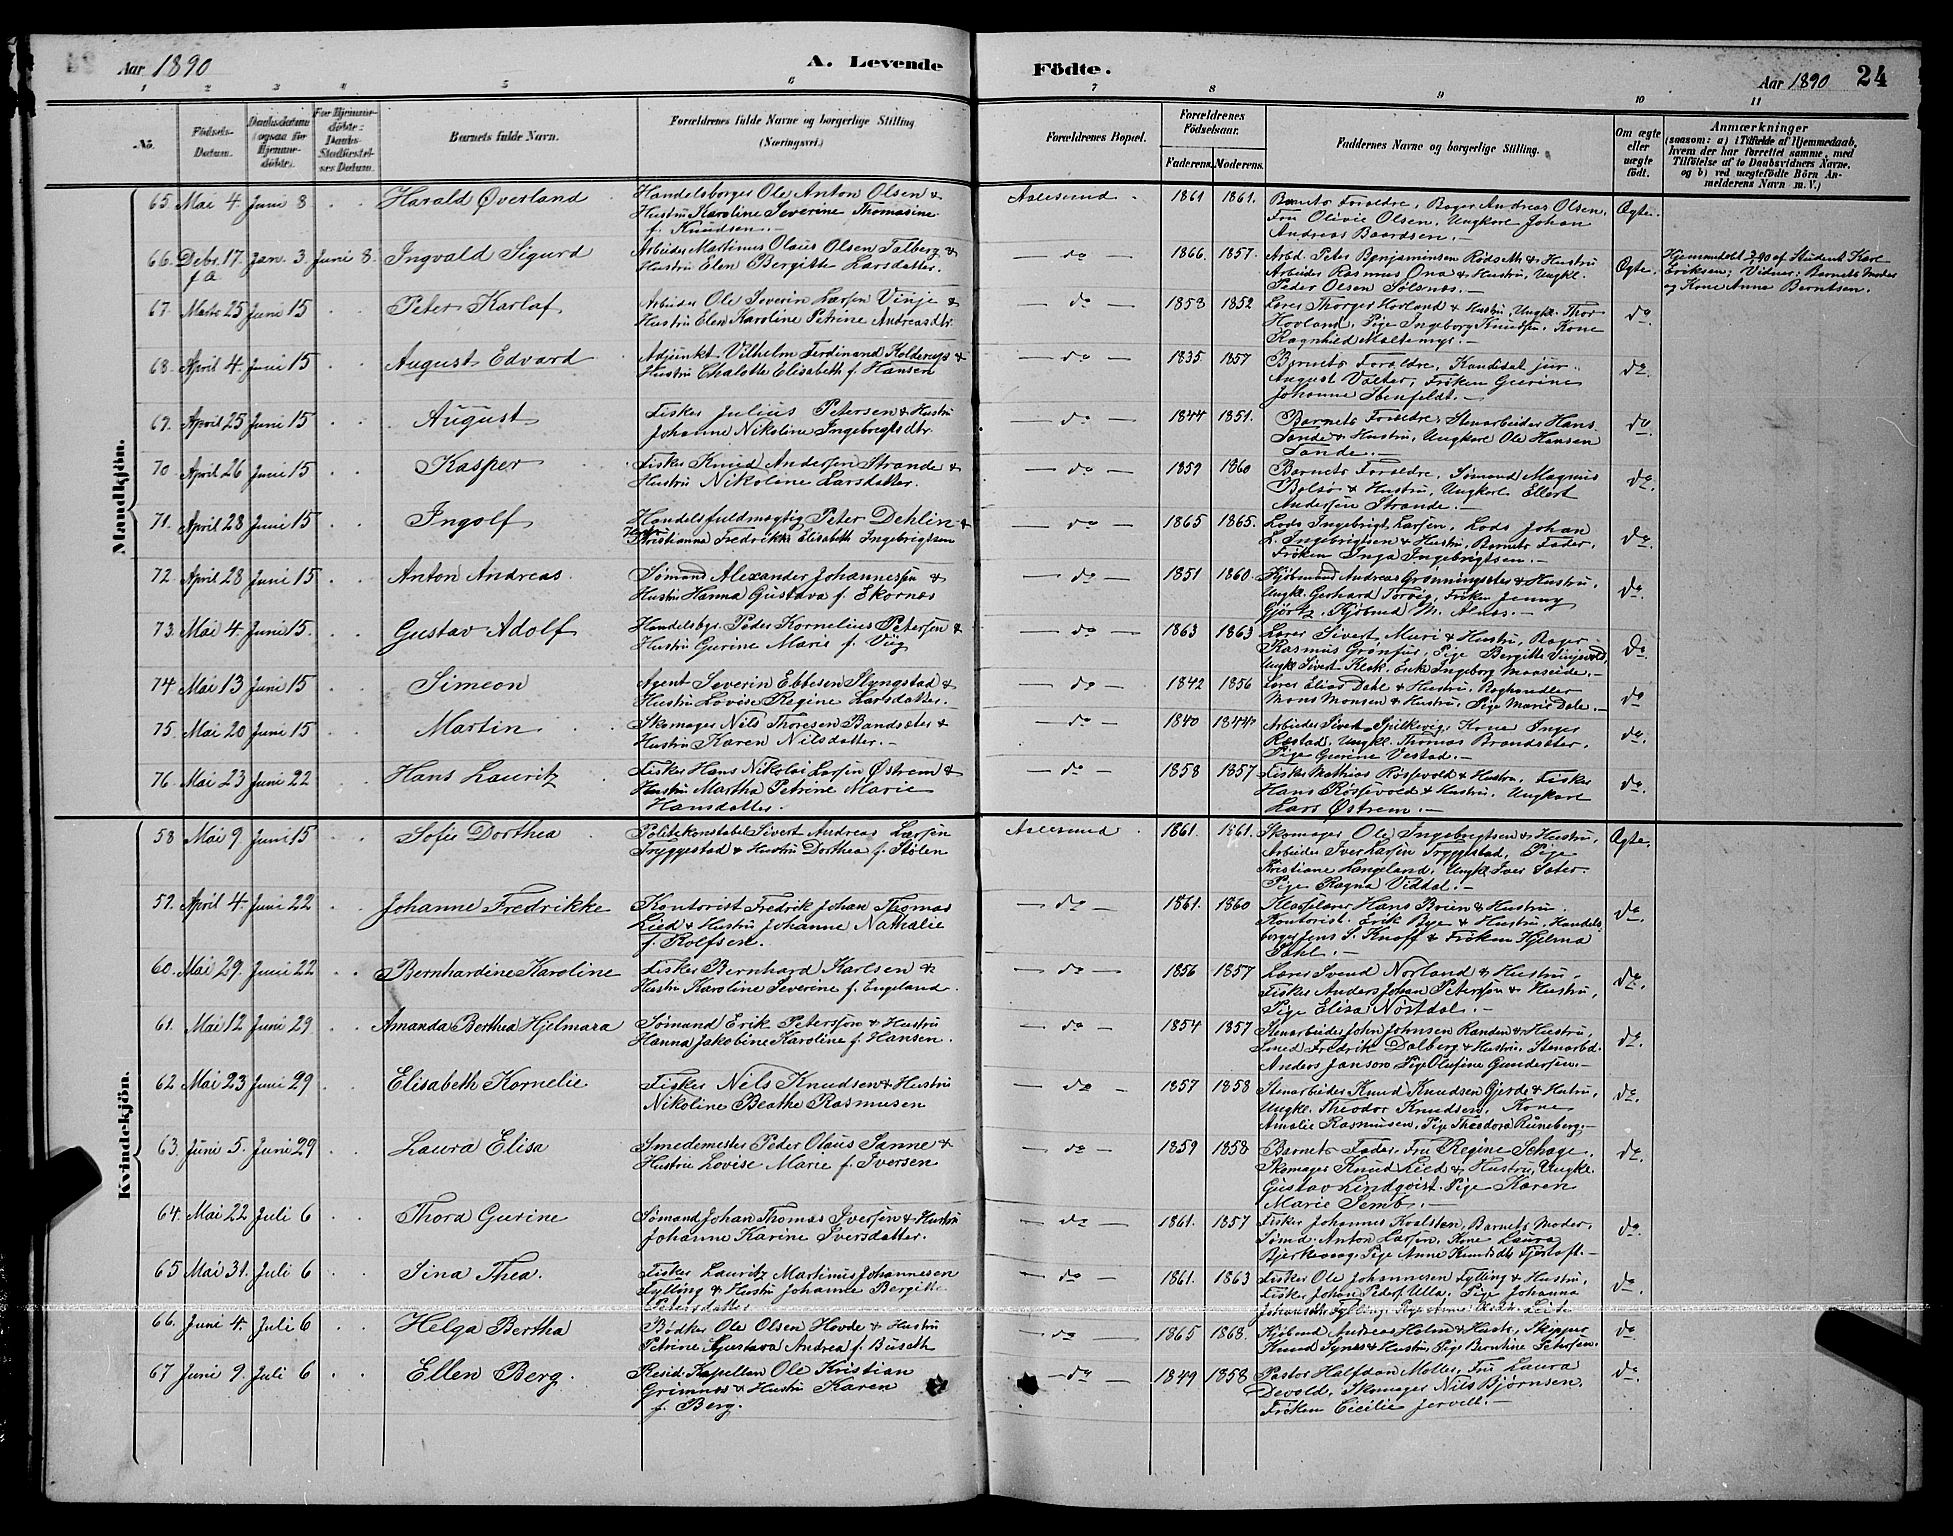 Aar 1890
A. Levende Födte.
Aar 1890 24
1 2 3 4 5 6 7 8 9 10 11
No.
Födsels-Datum.
Daabsdatum (ogsaa for Hjemmedöbte).
For Hjemmedöbte: Daabs-Stadfæstelses Datum.
Barnets fulde Navn.
Forældrenes fulde Navne og borgerlige Stilling (Næringsvei.)
Forældrenes Bopæl.
Forældrenes Födselsaar.
Faderens. Moderens.
Faddernes Navne og borgerlige Stilling.
Om ægte eller uægte födt.
Anmærkninger
(saasom: a) i Tilfælde af Hjemmedaab, hvem der har forrettet samme, med Tilföielse af to Daabsvidners Navne, og b) ved uægtefödte Börn Anmelderens Navn m. V.)
Mandkjön.
65. Mai 4. Juni 8 Harald Øverland Handelsborger Ole Anton Olsen & Hustru Karoline Severine Thomasine f. Knudsen.- Aalesund. 1861 1861. Barnets Forældre, Bager Andreas Olsen, Fru Olivie Olsen, Ungkarl Johan Andreas Baardsen.- Ægte.
66. Debr. 17. f.A Jan. 3. Juni 8. Ingvald Sigurd Arbeider Martinus Olaus Olsen Talberg & Hustru Elen Bergitte Larsdatter. do 1866. 1857. Arbd. Peter Benjaminsen Rødseth & Hustru Arbeider Rasmus Ona & Hustru, Ungkl. Peder Olsen Sølsnæs.- Ægte. Hjemmedøbt 3/1 90 af Student Karl Eriksen; Vidner: Barnets Moder og Kone Anna Berntsen.
67. Marts 25 Juni 15 Peter Karlof. Arbeider Ole Severin Larsen Vinje & Hustru Elen Karoline Petrine Andreasdtr. do 1853 1852 Lærer Thorger Hovland & Hustru, Ungkl. Thor Hovland, Pige Ingeborg Knudsen, Kone Ragnhild Maltemyr.- do
68. April 4. Juni 15 August Edvard Adjunkt Vilhelm Ferdinand Kolderup & Hustru Chalotte Elisabeth f. Hansen do 1835. 1857 Barnets Forældre, Kandidat jur. August Vatter, Frøken Gurine Johanne Ibenfeldt.- do.
69. April 25 Juni 15 August Fisker Julius Petersen & Hustru Johanne Nikoline Ingebrigtsdtr. do 1844 1851. Barnets Forældre, Stenarbeider Hans Tande & Hustru, Ungkarl Ole Hansen Tande.- do
70 April 26 Juni 15 Kasper Fisker Knud Andersen Strande & Hustru Nikoline Larsdatter. do 1859 1860 Barnets Forældre, Sømand Magnus Bolsø & Hustru, Ungkarl Ellert Andersen Strande.- do.
71. April 28 Juni 15 Ingolf Handelsfuldmægtig Peter Dehlin & Hustru Kristianna Fredrikke Elisabeth Ingebrigtsen do 1865 1865. Lods Ingebrigt Larsen, Lods Johan L. Ingebrigtsen & Hustru, Barnets Fader, Frøken Inga Ingebrigtsen.- do.
72. April 28 Juni 15 Anton Andreas. Sømand Alexander Johannessen & Hustru Hanna Gustava f. Ekornæs do 1851 1860. Kjøbmand Andreas Grønningsæter & Hustru, Ungk. Gerhard Torvig, Frøken Jenny Gjørtz, Kjøbmd M. Alnæs.- do.
73. Mai 4. Juni 15. Gustav Adolf Handelsbgr. Peder Kornelius Petersen & Hustru Gurine Marie f. Vig do 1863 1863 Lærer Sivert Muri & Hustru, Bager Rasmus Grønfur, Pige Bergitte Vinjevold, Ungkl Sivert Kleok, Enk Ingeborg Monseide.- do
74 Mai 13 Juni 15 Simeon Agent Severin Ebbesen Slyngstad & Hustru Lovise Regine Larsdatter.- do 1842 1856 Lærer Elias Dahl & Hustru, Boghandler Mons Monsen & Hustru, Pige Marie Dale.- do
75. Mai 20 Juni 15 Martin. Skomager Nils Thoresen Bandsæter & Hustru Karen Nilsdatter.- do 1840 1844 Arbeider Sivert Spilkevig, Kone Inger Røstad, Ungkl. Thomas Brandsæter, Pige Gurine Vestad.- do.
76. Mai 23 Juni 22 Hans Lauritz Fisker Hans Nikolai Larsen Østrem & Hustru Martha Petrine Marie Hansdatter. do 1858 1857 Fisker Mathias Røssevold & Hustru, Fisker Hans Røssevold & Hustru, Ungkarl Lars Østrem.- do.
Kvindekjön.
58 Mai 9. Juni 15 Sofie Dorthea Politikonstabel Sivert Andreas Larsen Tryggestad & Hustru Dorthea f. Stølen Aalesund. 1861. 1861. Skomager Ole Ingebrigtsen & Hustru, Arbeider Iver Larsen Tryggestad, Pige Kristiane Langeland, Ungkl Iver Sæter, Pige Ragna Viddal.- Ægte.
59. April 4. Juni 22 Johanne Fredrikke Kontorist Fredrik Johan Thomas Lied & Hustru Johanne Nathalie f. Rolfsen. do 1861. 1860 Klokker Hans Boien & Hustru, Kontorist Erik Bye & Hustru, Handelsborger Jens S. Knoff & Frøken Hjelma Dahl.- do.
60. Mai 29. Juni 22 Bernhardine Karoline Fisker Bernhard Karlsen & Hustru Karoline Severine f. Engeland. do 1856 1857 Lærer Svend Norland & Hustru, Fisker Anders Johan Petersen & Hustru, Pige Elisa Nørtdal.- do.
61. Mai 12 Juni 29 Amanda Berthea Hjelmara Sømand Erik Peterson & Hustru Hanna Jakobine Karoline f. Hansen. do 1854 1857 Stenarbeider John Johnsen Randen & Hustru, Smed Fredrik Dalberg & Hustru, Stenarbd. Anders Janson Pige Olufine Gundersen.- do.
62 Mai 23 Juni 29 Elisabeth Kornelie Fisker Nils Knudsen & Hustru Nikoline Beathe Rasmusen do 1857 1858 Stenarbeider Knud Knudsen Gjerde & Hustru, Ungkl. Theodor Knudsen, Kone Amalie Rasmusen, Pige Theodora Runeberg.- do.
63. Juni 5. Juni 29 Laura Elisa Smedemester Peder Olaus Sanne & Hustru Lovise Marie f. Iversen do 1859 1858 Barnets Fader, Fru Regine Schage, Skomager Knud Lied & Hustru, Ungkl. Gustav Lindqvist, Pige Karen Marie Semb.- do.
64. Mai 22 Juli 6 Thora Gurine Sømand Johan Thomas Iversen & Hustru Johanne Karine Iversdatter. do 1861. 1857 Fisker Johannes Kvalsten, Barnets Moder, Sømd. Anton Larsen, Kone Laura Bjerkevaag, Pige Anne Knudsdtr Fjørtoft.- do.
65 Mai 31. Juli 6 Sina Thea. Fisker Lauritz Martinus Johannesen Fylling & Hustru Johanne Bergitte Petersdatter do 1861. 1863 Fisker Ole Johannesen Fylling & Hustru, Fisker Johan Peders Ulla, Pige Johanna do.
66. Juni 4. Juli 6 Helga Bertha Bødker Ole Olsen Hovde & Hustru Petrine Gustava Andrea f. Buseth do 1865 1868. Kjøbmd Andreas Holm & Hustr., Skipper Knud Synes & Hustru, Pige Berntine Petersen. do
67 Juni 9. Juli 6 Ellen Berg. Resid. Kapellan Ole Kristian Grimnes & Hustru Karen f. Berg. do 1849 1858 Pastor Halfdan Møller, Fru Laura Devold, Skomager Nils Bjørnsen, Frøken Cicilie Jervell.- do.